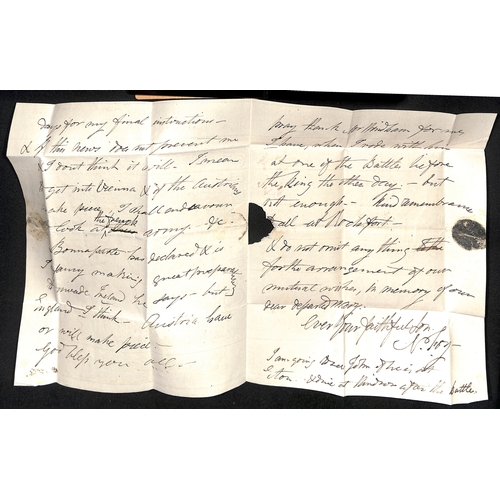 days for my final instructions -
& if this news does not prevent me
& I dont think it will. I mean
got into Vienna & if the Austrians
make peace, I shall endeavour
to look at the french army &c.
Bonnaparte has declared & is
I fancy making great preparations
towards Ireland he says - but
England I think - Austria have
or will make peace -
God bless you all -
pray thank Mr Windham for me
I have, when I rode with him
at one of the Battles before
the King the other day - but
not enough - Kind remembrance
to all at Rochfort -
& do not omit any thing
for the arrangement of our
mutual wishes, in memory of our
dear departed Mary.
Ever Your faithful Son,
I am going to see John & he is at
Eton - & dine at Windsor after the battle.